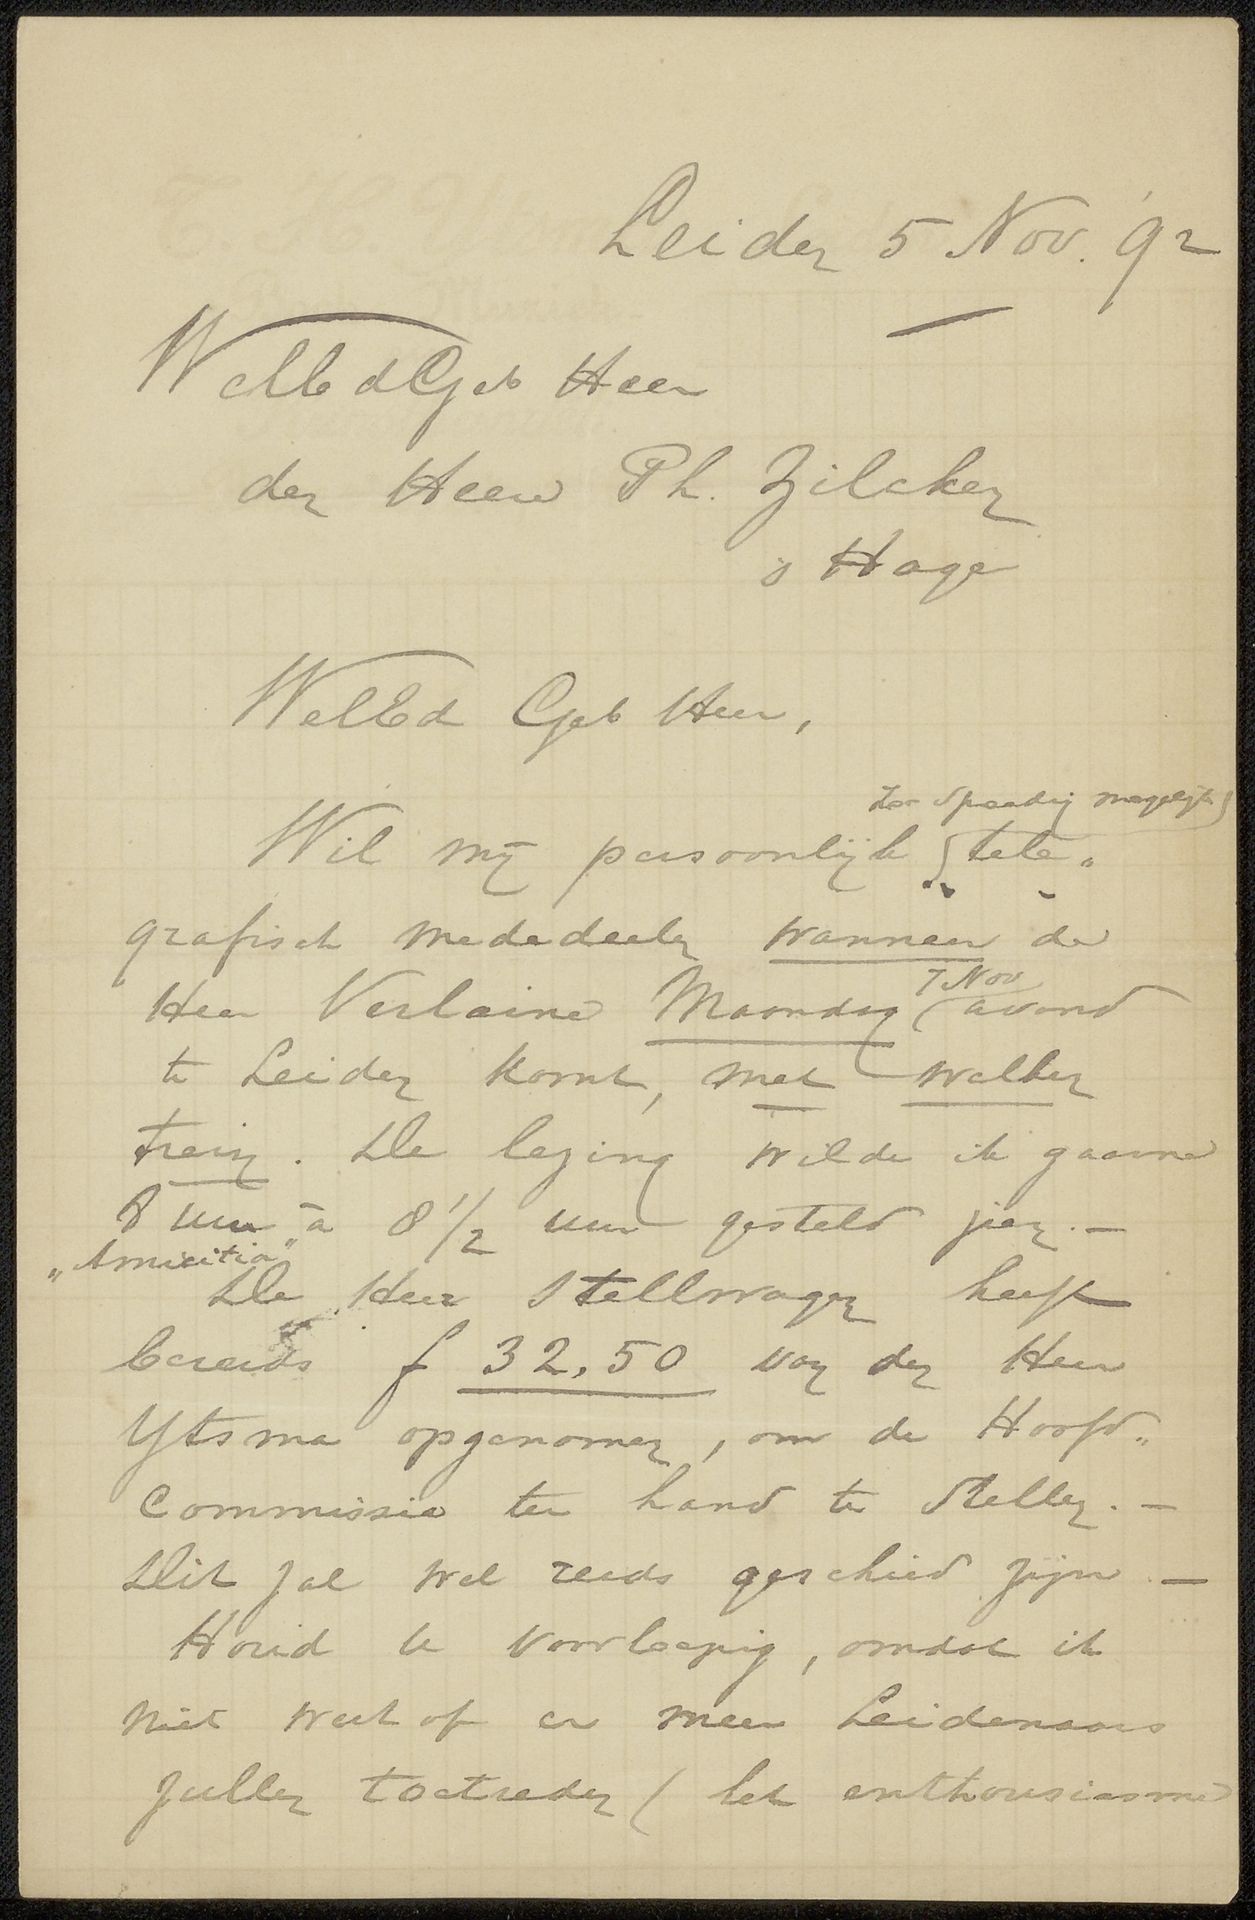 Leiden 5 Nov. '92
WelEdGeb Heer
den Heere Ph. Zilcken
's Hage
WelEd Geb Heer,
zoo spoedig mogelijk
Wil mij persoonlijk tele„
grafisch mededeelen wanneer de
7 Nov
Heer Verlaine Maandag avond
te Leiden komt, met welken
trein. De lezing wilde ik gaarne
8 uur à 8 1/2 uur gesteld zien. —
„Amicitia"
De Heer Stellwagen heeft
bereids f 32.50 van den Heer
Ytsma opgenomen, om de Hoofd„
commissie ter hand te stellen. —
Dit zal wel reeds geschied zijn —
Houd te voorloopig, omdat ik
niet weet of er meer Leidenaars
zullen toetreden (het enthousiasme